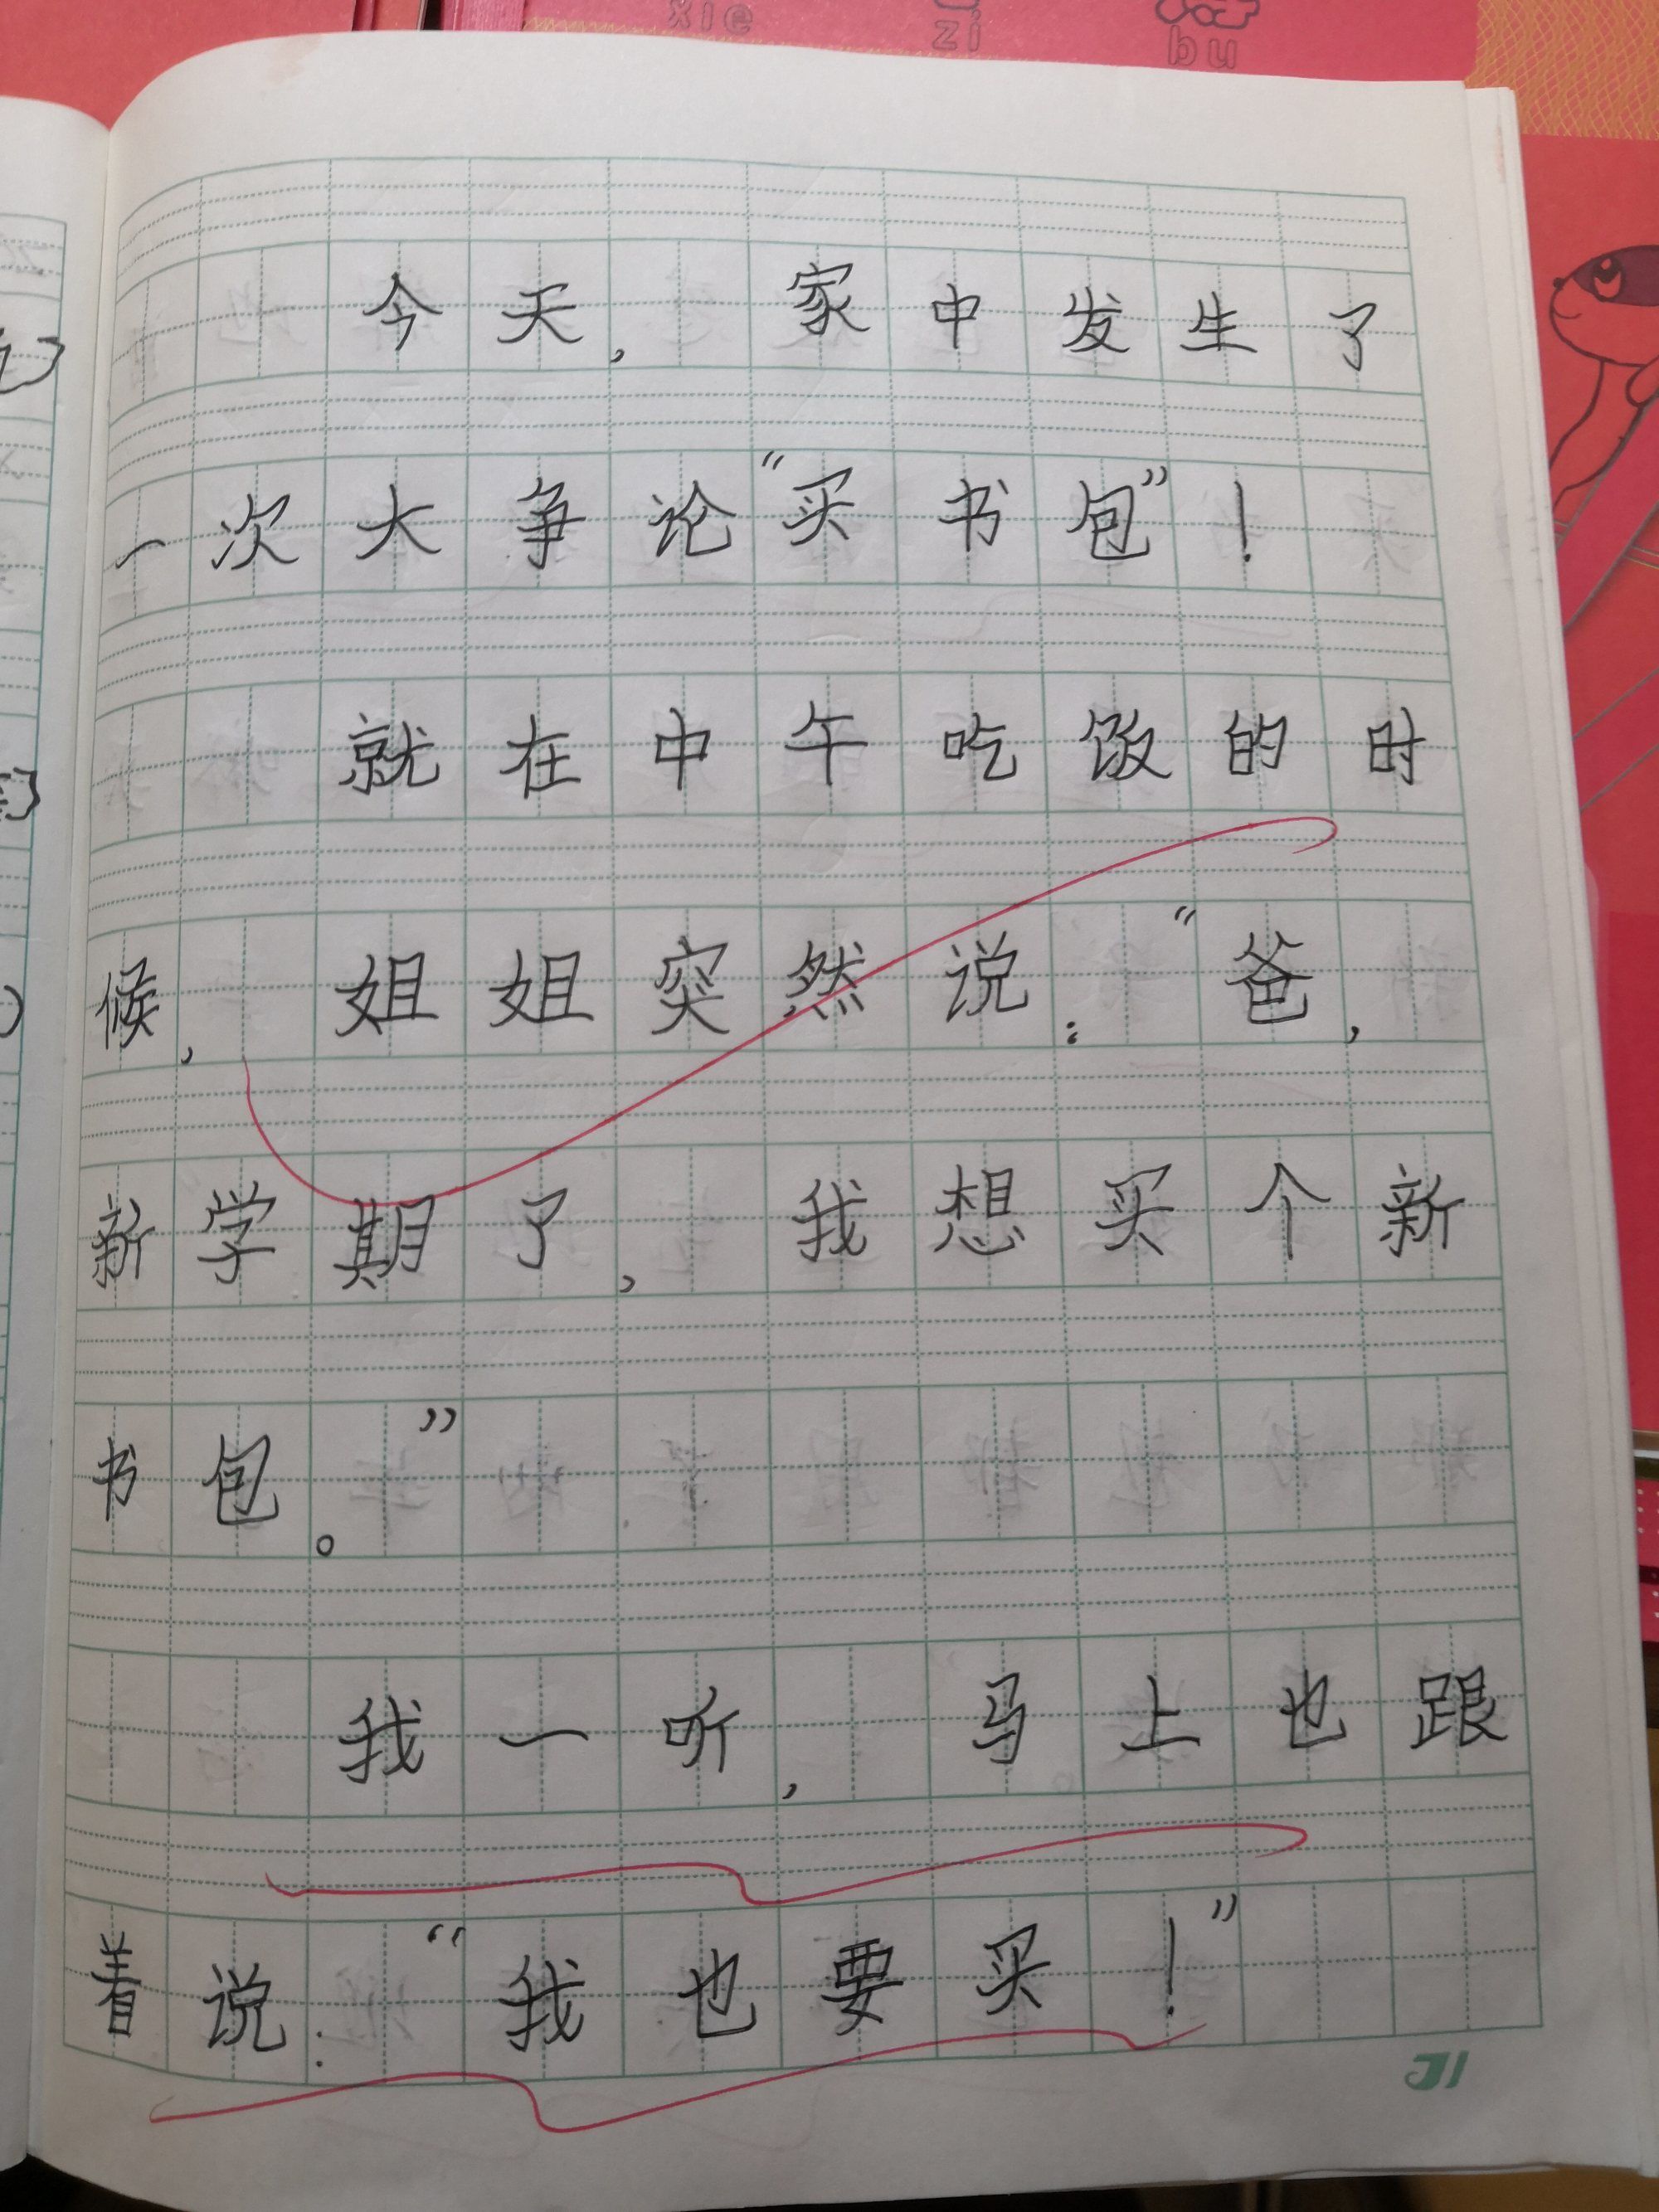 xie zi bu
今天，家中发生了
一次大争论“买书包”！
就在中午吃饭的时
候，姐姐突然说：“爸，
新学期了，我想买个新
书包。”
我一听，马上也跟
着说：“我也要买！”